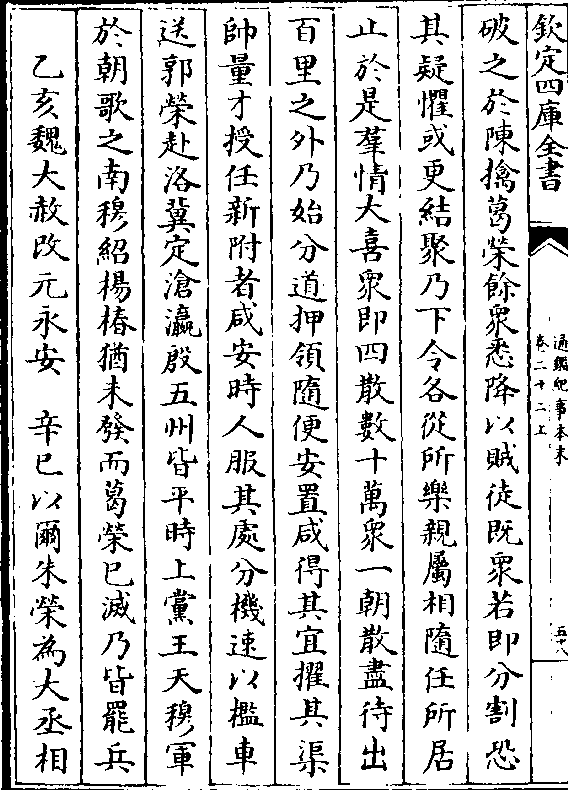 欽定四庫全書
通鑑紀事本末
卷二十二上
五十八
破之於陳擒葛榮餘衆悉降以賊徒既衆若即分割恐
其疑懼或更結聚乃下令各從所樂親屬相隨任所居
止於是羣情大喜衆即四散數十萬衆一朝散盡待出
百里之外乃始分道押領隨便安置咸得其宜擢其渠
帥量才授任新附者咸安時人服其處分機速以檻車
送郭榮赴洛冀定滄瀛殷五州皆平時上黨王天穆軍
於朝歌之南穆紹楊椿猶未發而葛榮已滅乃皆罷兵
乙亥魏大赦改元永安　辛巳以爾朱榮為大丞相